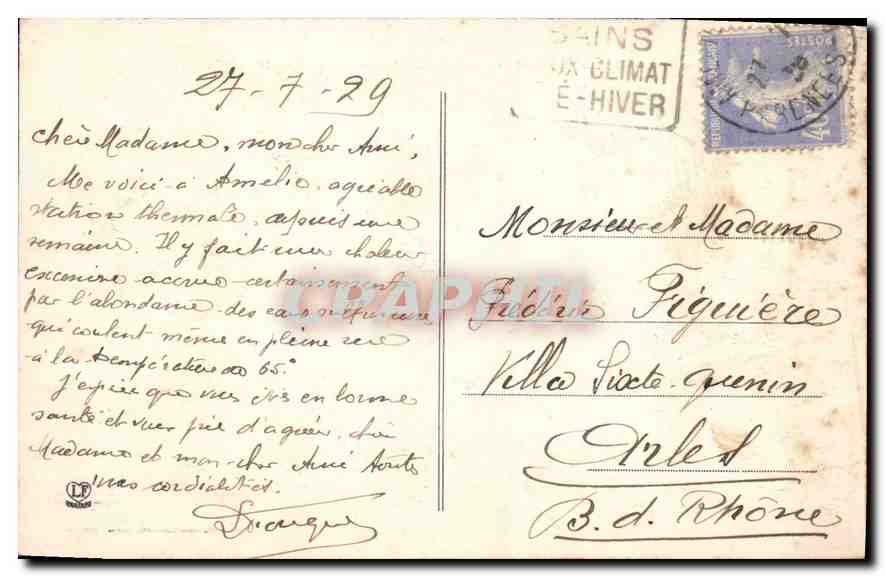 27-7-29
Chère Madame, mon cher Ami,
Me voici à Amélie, agréable
station thermale, depuis une
semaine. Il y fait une chaleur
excessive accrue certainement
par l'abondance des eaux sulfureuse
qui coulent même en pleine rue
à la température de 65°
J'espère que vous êtes en bonne
santé et vous prie d'agréer, chère
Madame et mon cher Ami toutes
mes cordialités.
LF
BAINS
UX-CLIMAT
É-HIVER
POSTES
27
29
PYRENEES
Monsieur et Madame
Frédéric Figuière
Villa Sixte-Quenin
Arles
B. d. Rhône
CPAPHIL